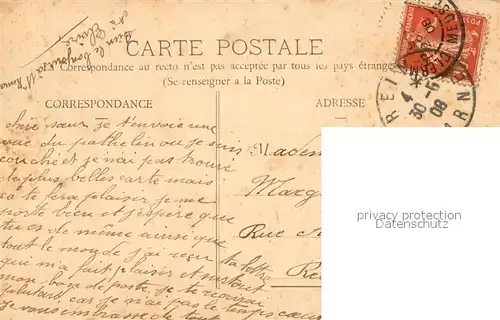 Bien le bonjour
à
CARTE POSTALE
Correspondance au recto n'est pas acceptée par tous les pays étrange
(Se renseigner à la Poste)
CORRESPONDANCE
ADRESSE
chère sœur je t'envoie une
vue du pathelin ou je suis
couché et je n'ai pas trouvé
de plus belles carte mais
ça te fera plaisir je me
porte bien et j'espère que
tu es de même ainsi que
tout le monde j'ai reçu ta lettre
qui m'a fait plaisir et surtout
mon bon de poste, je te
plutard car je n'ai pas le temps
je vous embrasse de tout
Madem
Marg
Rue
Re
4
30 -5
08
privacy protection
Datenschutz